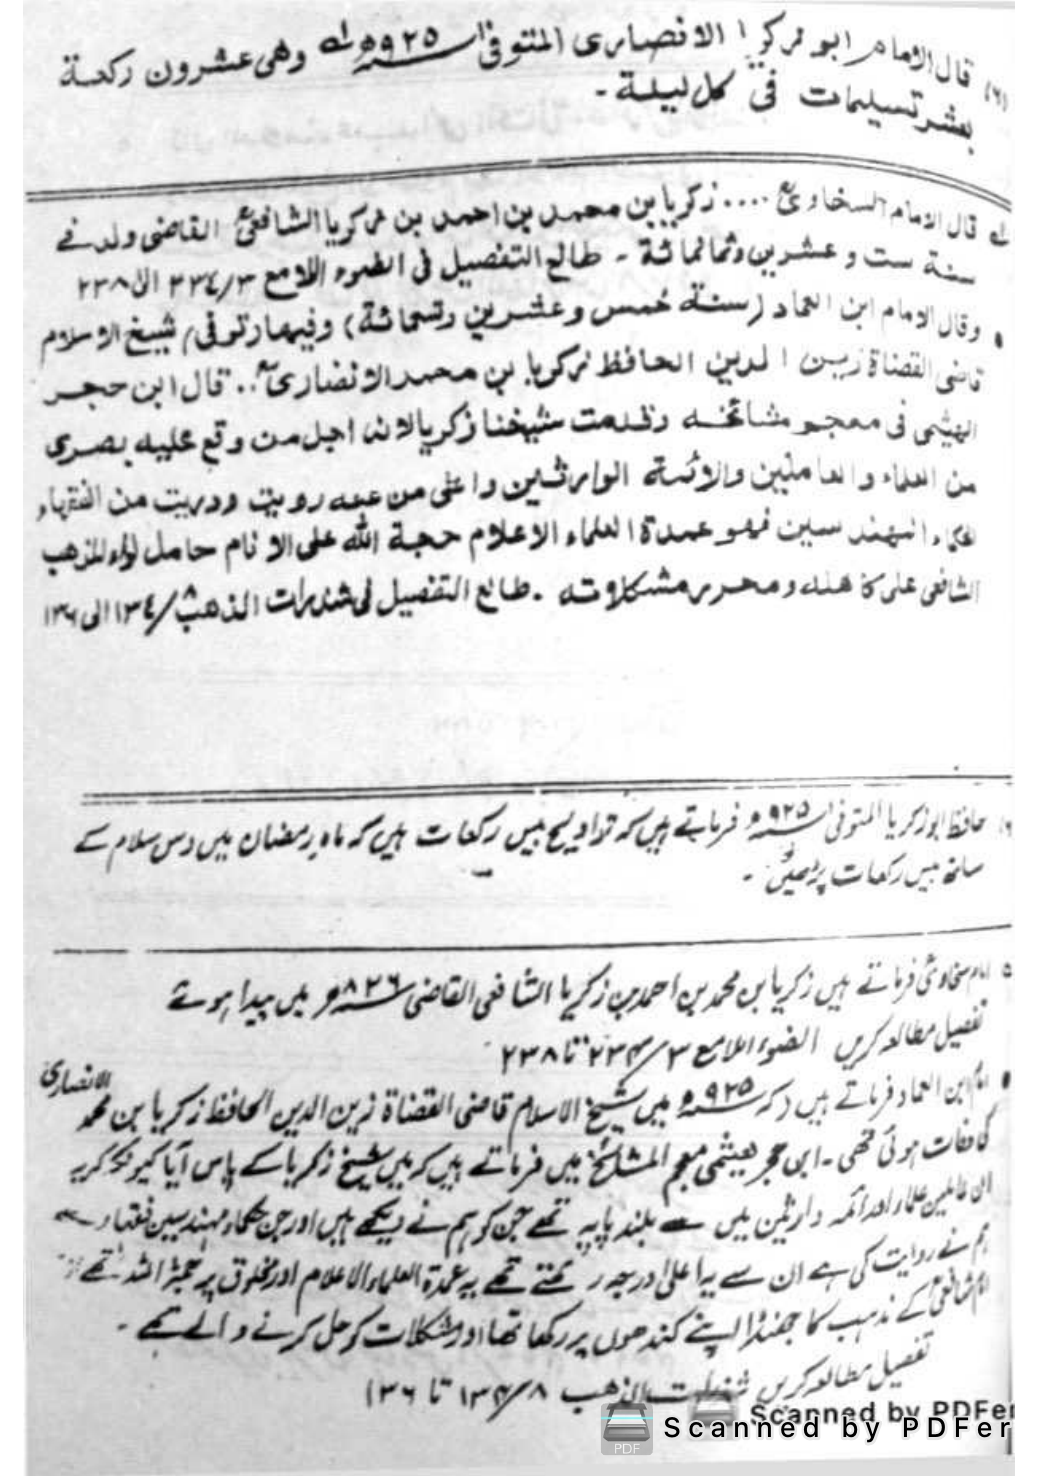 (٦) قال الامام ابو زکریا الانصاری المتوفی ٩٢٥ھ لہ وھی عشرون رکعة
بعشر تسلیمات فی کل لیلة ۔
لہ قال الامام السخاویؒ .... زکریا بن محمد بن احمد بن زکریا الشافعیؒ القاضی ولد فی
سنة ست و عشرین وثمانمائة ۔ طالع التفصیل فی الضوء اللامع ٣/٢٣٤ الی ٢٣٨
• وقال الامام ابن العماد (سنة خمس وعشرین وتسمائة) وفیها توفی شیخ الاسلام
قاضی القضاة زین الدین الحافظ زکریا بن محمد الانصاریؒ .. قال ابن حجر
الهیثمی فی معجم مشائخه وقدمت شیخنا زکریا لانه اجل من وقع علیه بصری
من العلماء والعاملین والائمة الوارثین واعلی من عنه رویت ودریت من الفقهاء
الحکماء المهندسین فهو عمدة العلماء الاعلام حجة الله علی الانام حامل لواء المذهب
الشافعی علی کاهله ومحرر مشکلاته ۔ طالع التفصیل فی شذرات الذهب ٨/١٣٤ الی ١٣٦
حافظ ابوزکریا المتوفی ٩٢٥ھ فرماتے ہیں کہ تراویح بیس رکعات ہیں کہ ماہ رمضان میں دس سلام کے
ساتھ بیس رکعات پڑھیں ۔
٥ امام سخاویؒ فرماتے ہیں زکریا بن محمد بن احمد بن زکریا الشافعی القاضی ٨٢٦ھ میں پیدا ہوئے
تفصیل مطالعہ کریں الضوء اللامع ٣/٢٣٤ تا ٢٣٨
• امام ابن العماد فرماتے ہیں کہ ٩٢٥ھ میں شیخ الاسلام قاضی القضاة زین الدین الحافظ زکریا بن محمد الانصاریؒ
کا وفات ہوئی تھی ۔ ابن حجر ہیثمی معجم المشائخ میں فرماتے ہیں کہ میں شیخ زکریا کے پاس آیا کیونکہ یہ
ان عاملین علماء اور ائمہ وارثین میں سے بلند پایہ تھے جن کو ہم نے دیکھے ہیں اور جن حکماء مہندسین فقہاء سے
ہم نے روایت کی ہے ان سے یہ اعلیٰ درجہ رکھتے تھے یہ عمدة العلماء الاعلام اور مخلوق پر حجة اللہ تھے
امام شافعیؒ کے مذہب کا جھنڈا اپنے کندھوں پر رکھا تھا اور مشکلات کو حل کرنے والے تھے ۔
تفصیل مطالعہ کریں شذرات الذهب ٨/١٣٤ تا ١٣٦)
Scanned by PDFer
PDF Scanned by PDFer